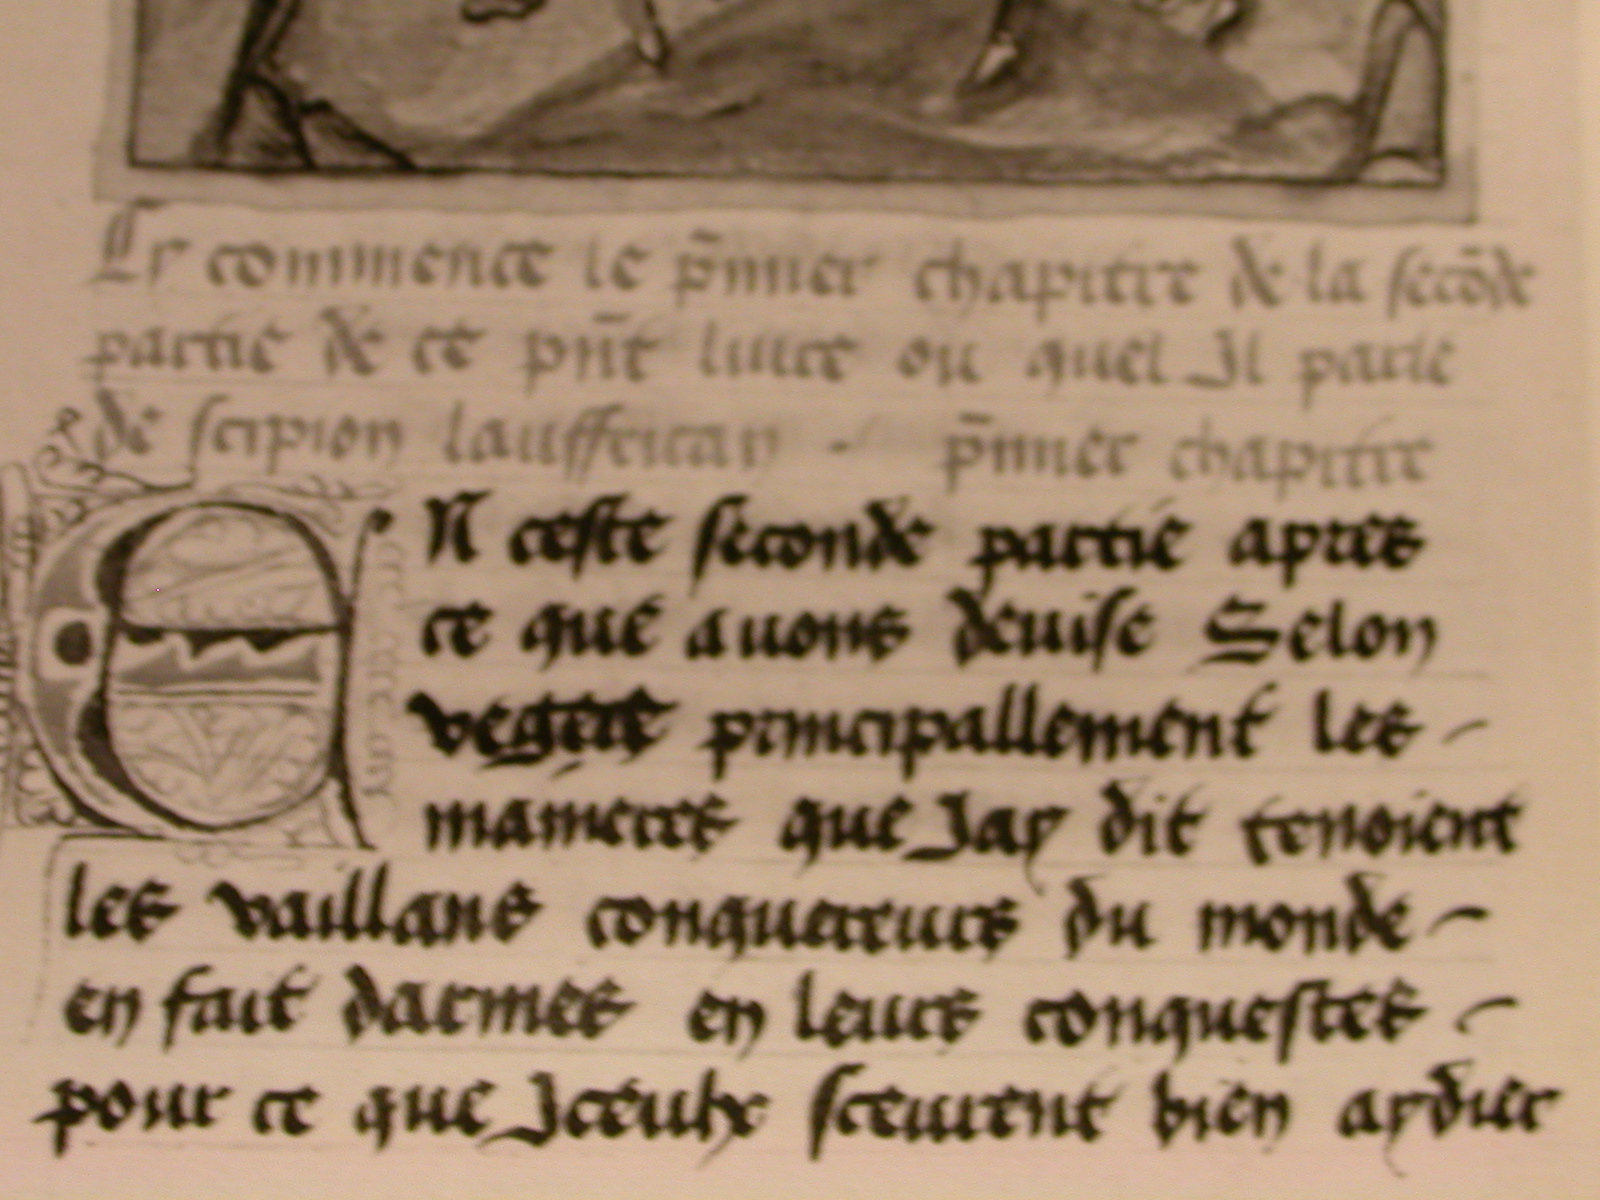 Cy commence le p̄mier chapitre de la secōde
partie de ce pn̄t liure ou quel Il parle
de scipion lauffrican - p̄mier chapitre
EN ceste seconde partie apres
ce que auons deuise Selon
vegece principallement les -
manieres que Jay dit tenoient
les vaillans conquereurs du monde -
en fait darmes en leurs conquestes -
pour ce que Jceulx sceurent bien aydier